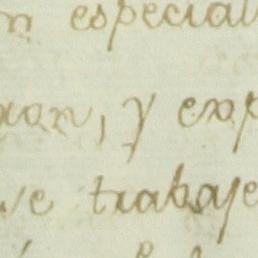 n especial
xon, y exp
ve trabaje